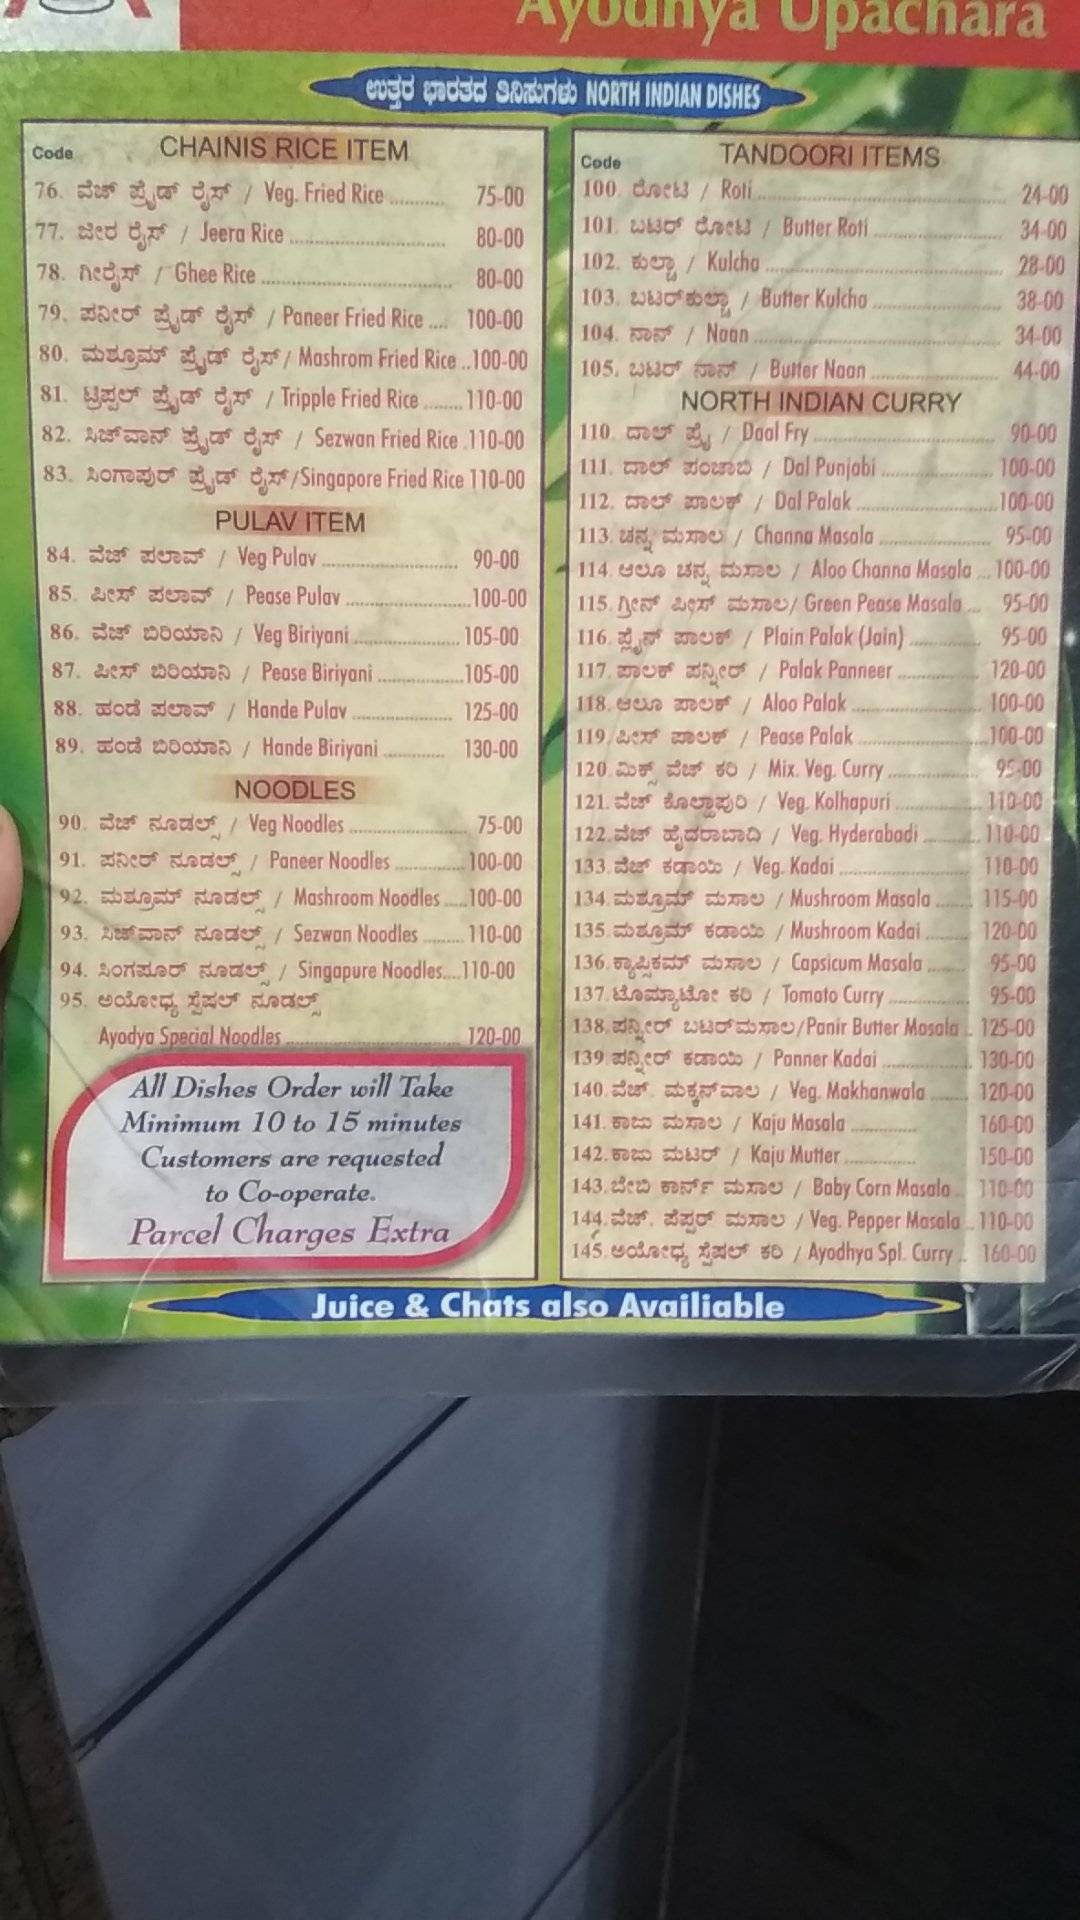 Ayodhya Upachara
ಉತ್ತರ ಭಾರತದ ತಿನಿಸುಗಳು NORTH INDIAN DISHES
Code CHAINIS RICE ITEM
76. ವೆಜ್ ಫ್ರೈಡ್ ರೈಸ್ / Veg. Fried Rice .......... 75-00
77. ಜೀರ ರೈಸ್ / Jeera Rice ............................ 80-00
78. ಗೀರೈಸ್ / Ghee Rice ................................... 80-00
79. ಪನೀರ್ ಫ್ರೈಡ್ ರೈಸ್ / Paneer Fried Rice .... 100-00
80. ಮಶ್ರೂಮ್ ಫ್ರೈಡ್ ರೈಸ್/ Mashrom Fried Rice ..100-00
81. ಟ್ರಿಪ್ಪಲ್ ಫ್ರೈಡ್ ರೈಸ್ / Tripple Fried Rice ........110-00
82. ಸಿಜ್‌ವಾನ್ ಫ್ರೈಡ್ ರೈಸ್ / Sezwan Fried Rice .110-00
83. ಸಿಂಗಾಪುರ್ ಫ್ರೈಡ್ ರೈಸ್/Singapore Fried Rice 110-00
PULAV ITEM
84. ವೆಜ್ ಪಲಾವ್ / Veg Pulav ......................... 90-00
85. ಪೀಸ್ ಪಲಾವ್ / Pease Pulav .......................100-00
86. ವೆಜ್ ಬಿರಿಯಾನಿ / Veg Biriyani ................... 105-00
87. ಪೀಸ್ ಬಿರಿಯಾನಿ / Pease Biriyani ................105-00
88. ಹಂಡೆ ಪಲಾವ್ / Hande Pulav ................... 125-00
89. ಹಂಡೆ ಬಿರಿಯಾನಿ / Hande Biriyani ............ 130-00
NOODLES
90. ವೆಜ್ ನೂಡಲ್ಸ್ / Veg Noodles ...................... 75-00
91. ಪನೀರ್ ನೂಡಲ್ಸ್ / Paneer Noodles .............100-00
92. ಮಶ್ರೂಮ್ ನೂಡಲ್ಸ್ / Mashroom Noodles .....100-00
93. ಸಿಜ್‌ವಾನ್ ನೂಡಲ್ಸ್ / Sezwan Noodles ........ 110-00
94. ಸಿಂಗಪೂರ್ ನೂಡಲ್ಸ್ / Singapure Noodles....110-00
95. ಅಯೋಧ್ಯ ಸ್ಪೆಷಲ್ ನೂಡಲ್ಸ್
Ayodya Special Noodles ............................. 120-00
All Dishes Order will Take
Minimum 10 to 15 minutes
Customers are requested
to Co-operate.
Parcel Charges Extra
Code TANDOORI ITEMS
100. ರೋಟಿ / Roti .......................................... 24-00
101. ಬಟರ್ ರೋಟಿ / Butter Roti ..................... 34-00
102. ಕುಲ್ಚಾ / Kulcha ...................................... 28-00
103. ಬಟರ್‌ಕುಲ್ಚಾ / Butter Kulcha .................... 38-00
104. ನಾನ್ / Naan .......................................... 34-00
105. ಬಟರ್ ನಾನ್ / Butter Naan ..................... 44-00
NORTH INDIAN CURRY
110. ದಾಲ್ ಫ್ರೈ / Daal Fry .............................. 90-00
111. ದಾಲ್ ಪಂಜಾಬಿ / Dal Punjabi .................... 100-00
112. ದಾಲ್ ಪಾಲಕ್ / Dal Palak .........................100-00
113. ಚನ್ನ ಮಸಾಲ / Channa Masala ................... 95-00
114. ಆಲೂ ಚನ್ನ ಮಸಾಲ / Aloo Channa Masala ...100-00
115. ಗ್ರೀನ್ ಪೀಸ್ ಮಸಾಲ/ Green Pease Masala ... 95-00
116. ಪ್ಲೈನ್ ಪಾಲಕ್ / Plain Palak (Jain) ............. 95-00
117. ಪಾಲಕ್ ಪನ್ನೀರ್ / Palak Panneer .............. 120-00
118. ಆಲೂ ಪಾಲಕ್ / Aloo Palak ...................... 100-00
119. ಪೀಸ್ ಪಾಲಕ್ / Pease Palak .....................100-00
120. ಮಿಕ್ಸ್ ವೆಜ್ ಕರಿ / Mix. Veg. Curry ............... 95-00
121. ವೆಜ್ ಕೊಲ್ಹಾಪುರಿ / Veg. Kolhapuri .............. 110-00
122. ವೆಜ್ ಹೈದರಾಬಾದಿ / Veg. Hyderabadi ..........110-00
133. ವೆಜ್ ಕಡಾಯಿ / Veg. Kadai ........................ 110-00
134. ಮಶ್ರೂಮ್ ಮಸಾಲ / Mushroom Masala ........ 115-00
135. ಮಶ್ರೂಮ್ ಕಡಾಯಿ / Mushroom Kadai ......... 120-00
136. ಕ್ಯಾಪ್ಸಿಕಮ್ ಮಸಾಲ / Capsicum Masala ........ 95-00
137. ಟೊಮ್ಯಾಟೋ ಕರಿ / Tomato Curry ................ 95-00
138. ಪನ್ನೀರ್ ಬಟರ್‌ಮಸಾಲ/Panir Butter Masala .. 125-00
139 ಪನ್ನೀರ್ ಕಡಾಯಿ / Panner Kadai ................. 130-00
140. ವೆಜ್. ಮಕ್ಕನ್‌ವಾಲ / Veg. Makhanwala ........ 120-00
141. ಕಾಜು ಮಸಾಲ / Kaju Masala .............. 160-00
142. ಕಾಜು ಮಟರ್ / Kaju Mutter ............... 150-00
143. ಬೇಬಿ ಕಾರ್ನ್ ಮಸಾಲ / Baby Corn Masala .. 110-00
144. ವೆಜ್. ಪೆಪ್ಪರ್ ಮಸಾಲ / Veg. Pepper Masala .. 110-00
145. ಅಯೋಧ್ಯ ಸ್ಪೆಷಲ್ ಕರಿ / Ayodhya Spl. Curry .. 160-00
Juice & Chats also Availiable